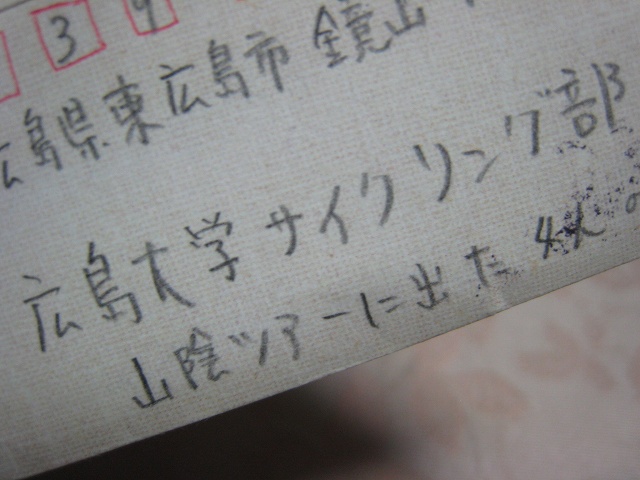 39
広島県東広島市 鏡山
広島大学サイクリング部
山陰ツアーに出た 4人の